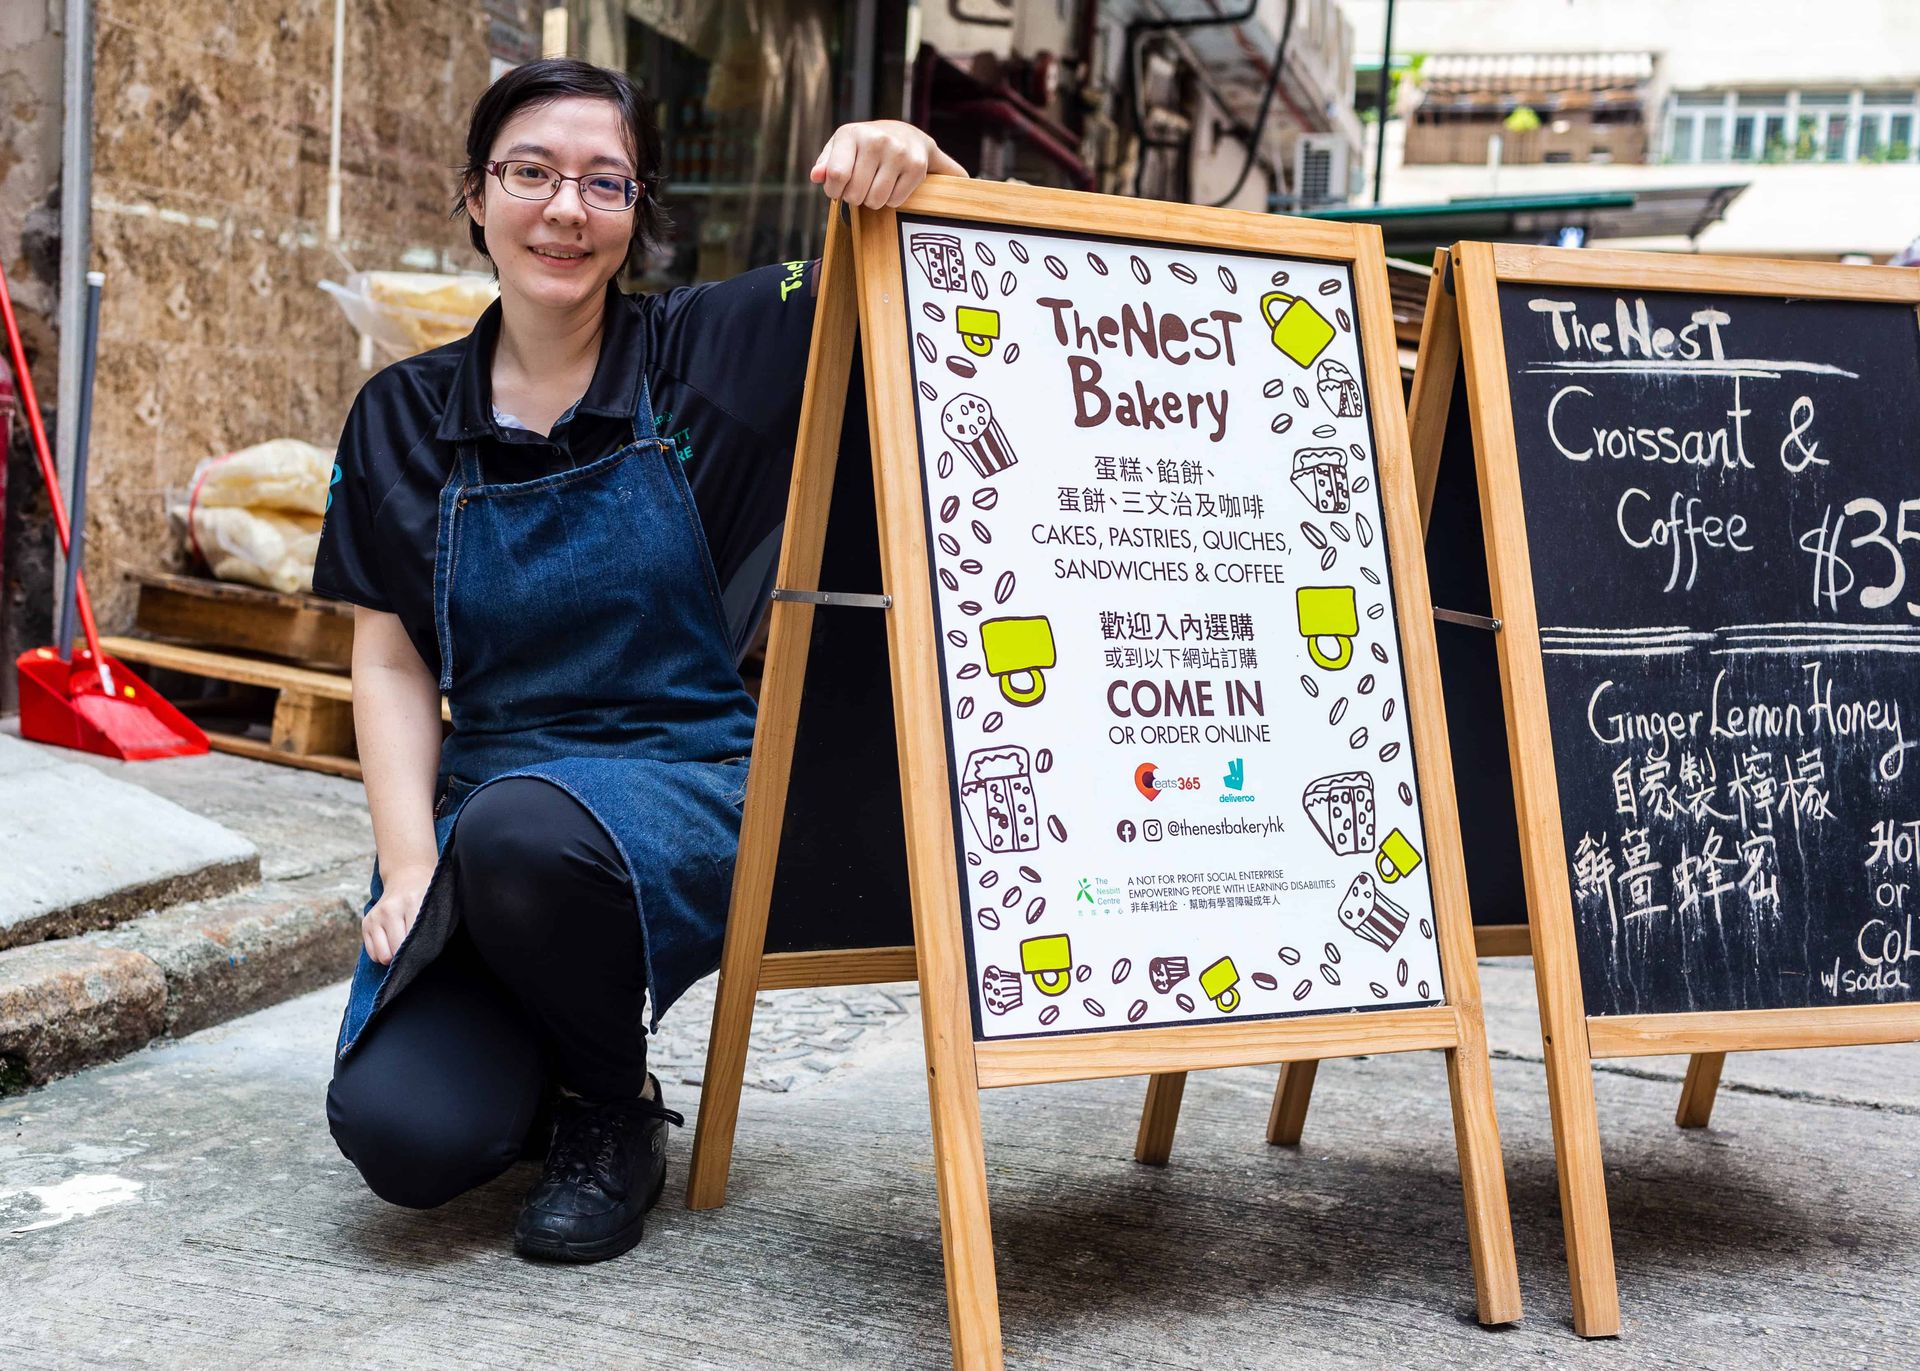 The Nest
Bakery
蛋糕、餡餅、
蛋餅、三文治及咖啡
CAKES, PASTRIES, QUICHES,
SANDWICHES & COFFEE
歡迎入內選購
或到以下網站訂購
COME IN
OR ORDER ONLINE
eats365
deliveroo
@thenestbakeryhk
The
Nesbitt
Centre
A NOT FOR PROFIT SOCIAL ENTERPRISE
EMPOWERING PEOPLE WITH LEARNING DISABILITIES
非牟利社企 · 幫助有學習障礙成年人
The Nest
Croissant &
Coffee $35
Ginger Lemon Honey
自家製檸檬
鮮薑蜂蜜
HOT
or
COL
w/soda